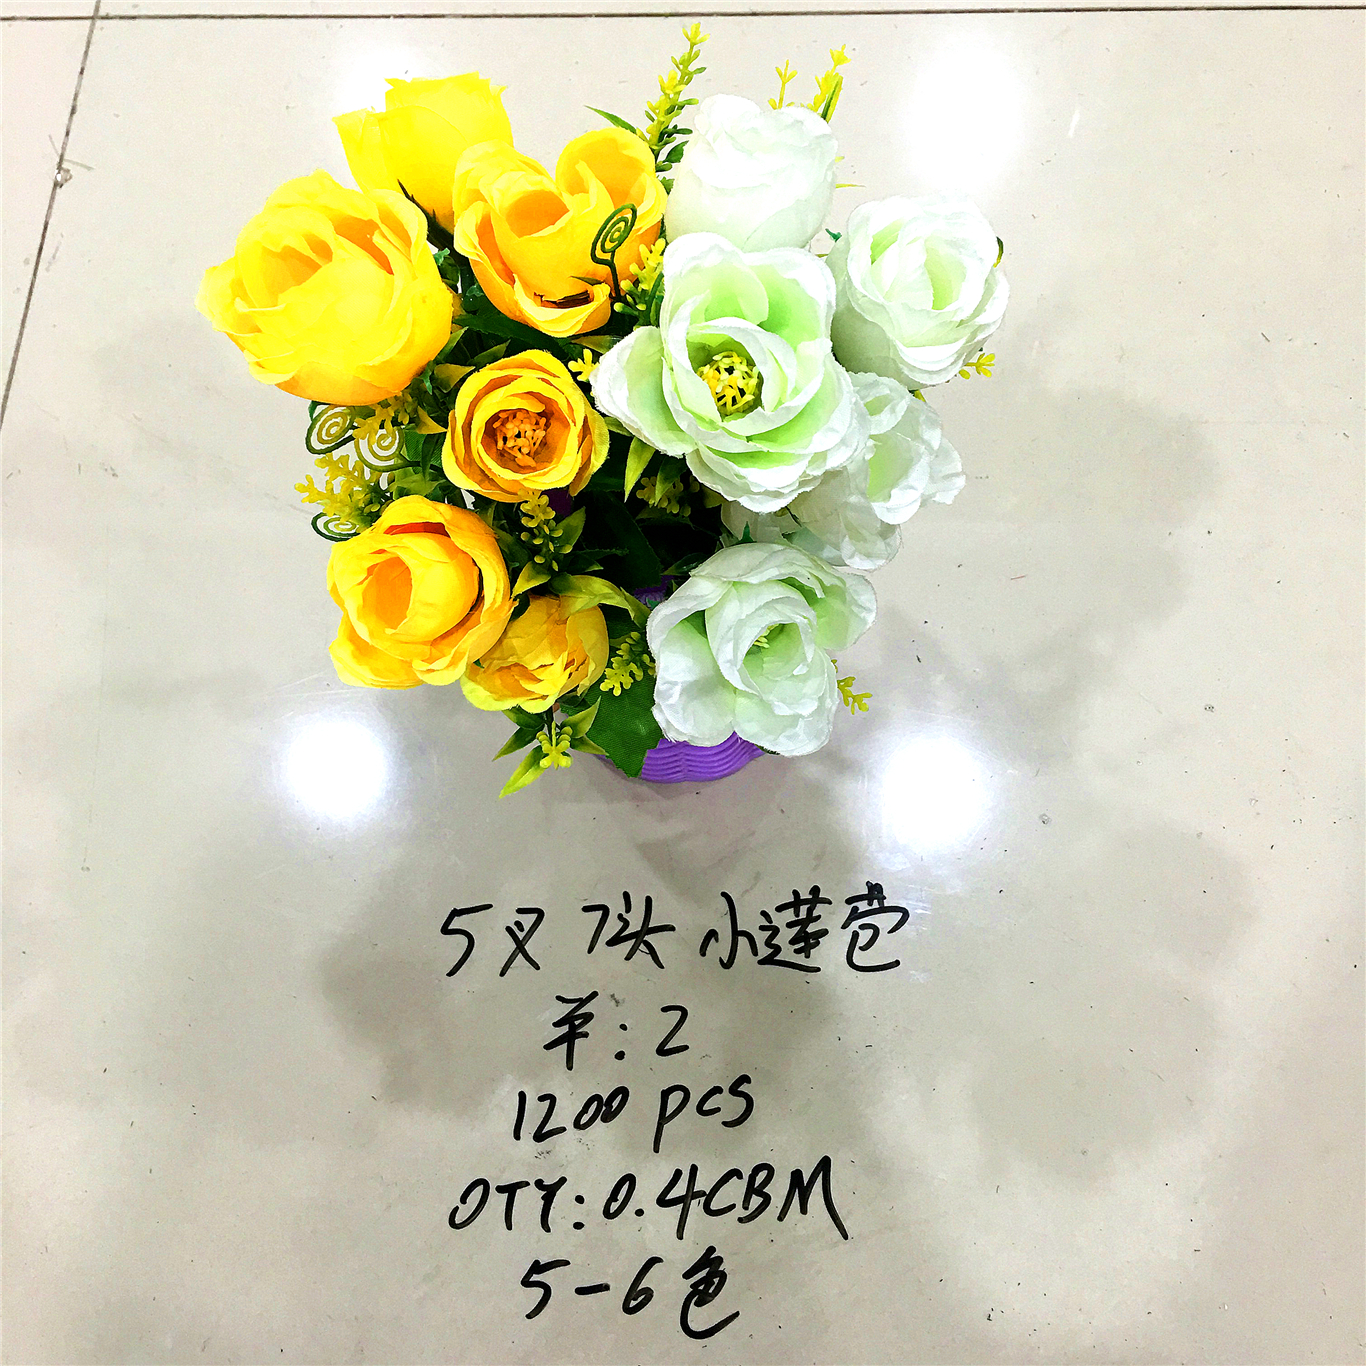 5叉 7头 小莲苞
单: 2
1200 pcs
QTY: 0.4CBM
5-6色